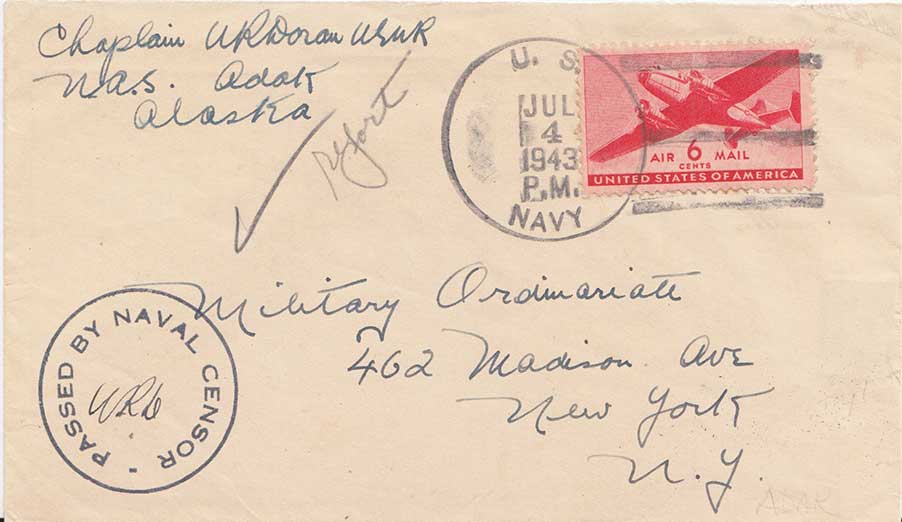 Chaplain WRDoran USNR
N.A.S. Adak
Alaska
report
U. S.
JUL
4
1943
P.M.
NAVY
AIR 6 MAIL
CENTS
UNITED STATES OF AMERICA
Military Ordinariate
462 Madison Ave
New York
N.Y.
PASSED BY NAVAL CENSOR
WRD
ADAK